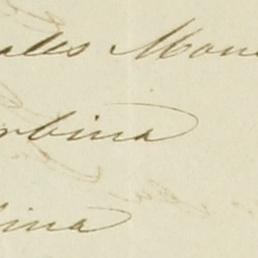 ales Mon
rbina
bina